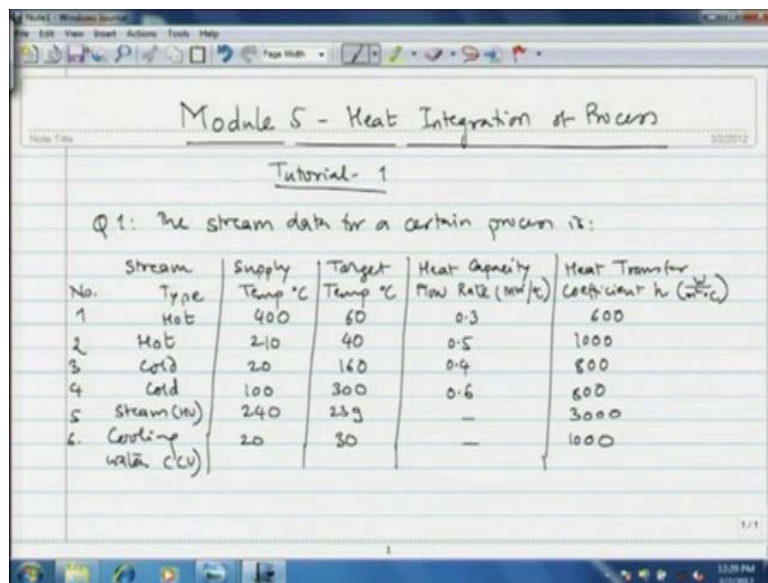 Note1 - Windows Journal
File Edit View Insert Actions Tools Help
Page Width
Module 5 - Heat Integration of Process
Note Title
3/2/2012
Tutorial- 1
Q1: The stream data for a certain process is:
No. Stream Type Supply Temp °C Target Temp °C Heat Capacity Flow Rate (MW/°C) Heat Transfer Coefficient h (W/m²°C)
1 Hot 400 60 0.3 600
2 Hot 210 40 0.5 1000
3 Cold 20 160 0.4 800
4 Cold 100 300 0.6 800
5 Steam (HU) 240 239 — 3000
6. Cooling water (CU) 20 30 — 1000
1/1
1
12:29 PM
3/2/2012